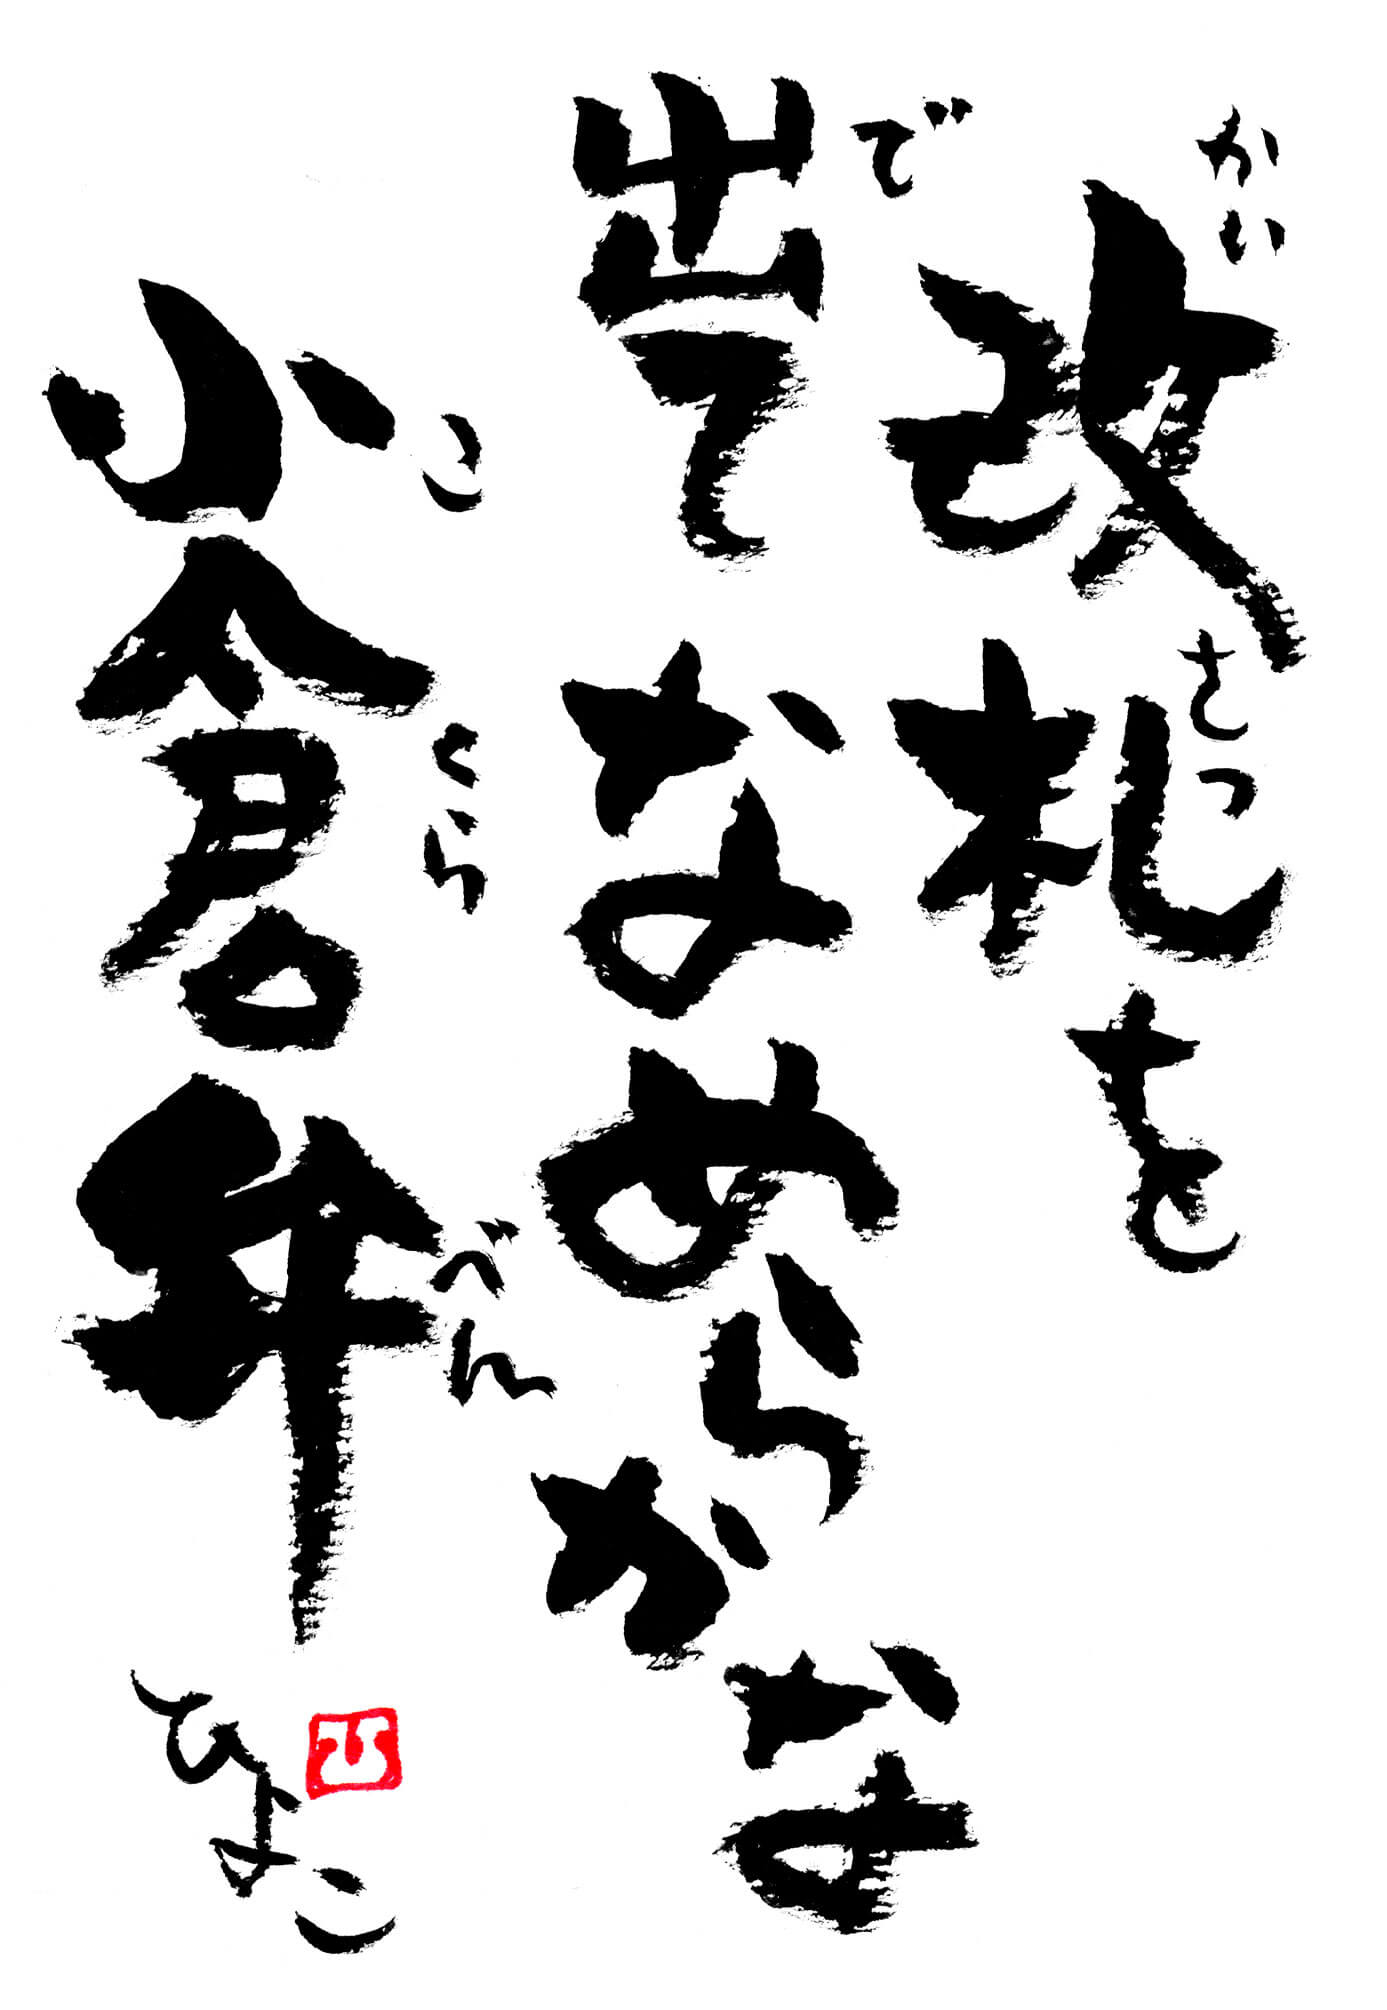 改札を
かいさつ
出て なめらかな
で
小倉弁
こくらべん
ひよこ
ひ